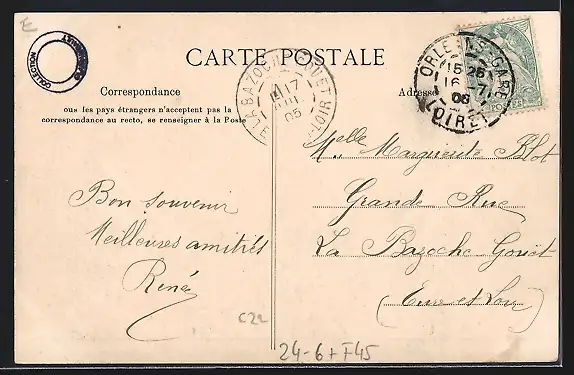 E
CARTE POSTALE
Correspondance
ous les pays étrangers n'acceptent pas la
correspondance au recto, se renseigner à la Poste
Adresse
ORLEANS-GARE
15 25
16 -7
05
LOIRET
17
05
COLLECTION
Melle Marguerite Blot
Grande Rue
La Bazoche Gouet
(Eure et Loir)
Bon souvenir
Meilleures amitiés
René
C22
24-6+F45